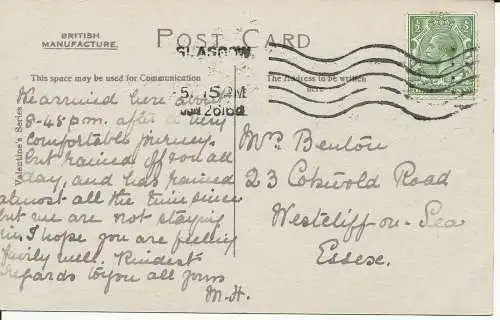 BRITISH
MANUFACTURE.
POST CARD
GLASGOW
This space may be used for Communication
The Address to be written
here
5. 15 PM
Valentine's Series
We arrived here about
8-45 p.m. after a very
comfortable journey.
but rained off on all
day, and has rained
almost all the time since
but we are not staying
in. I hope you are feeling
fairly well. Kindest
regards to you all yours
M.H.
Mrs Benton
23 Cotswold Road
Westcliff-on-Sea
Essex.